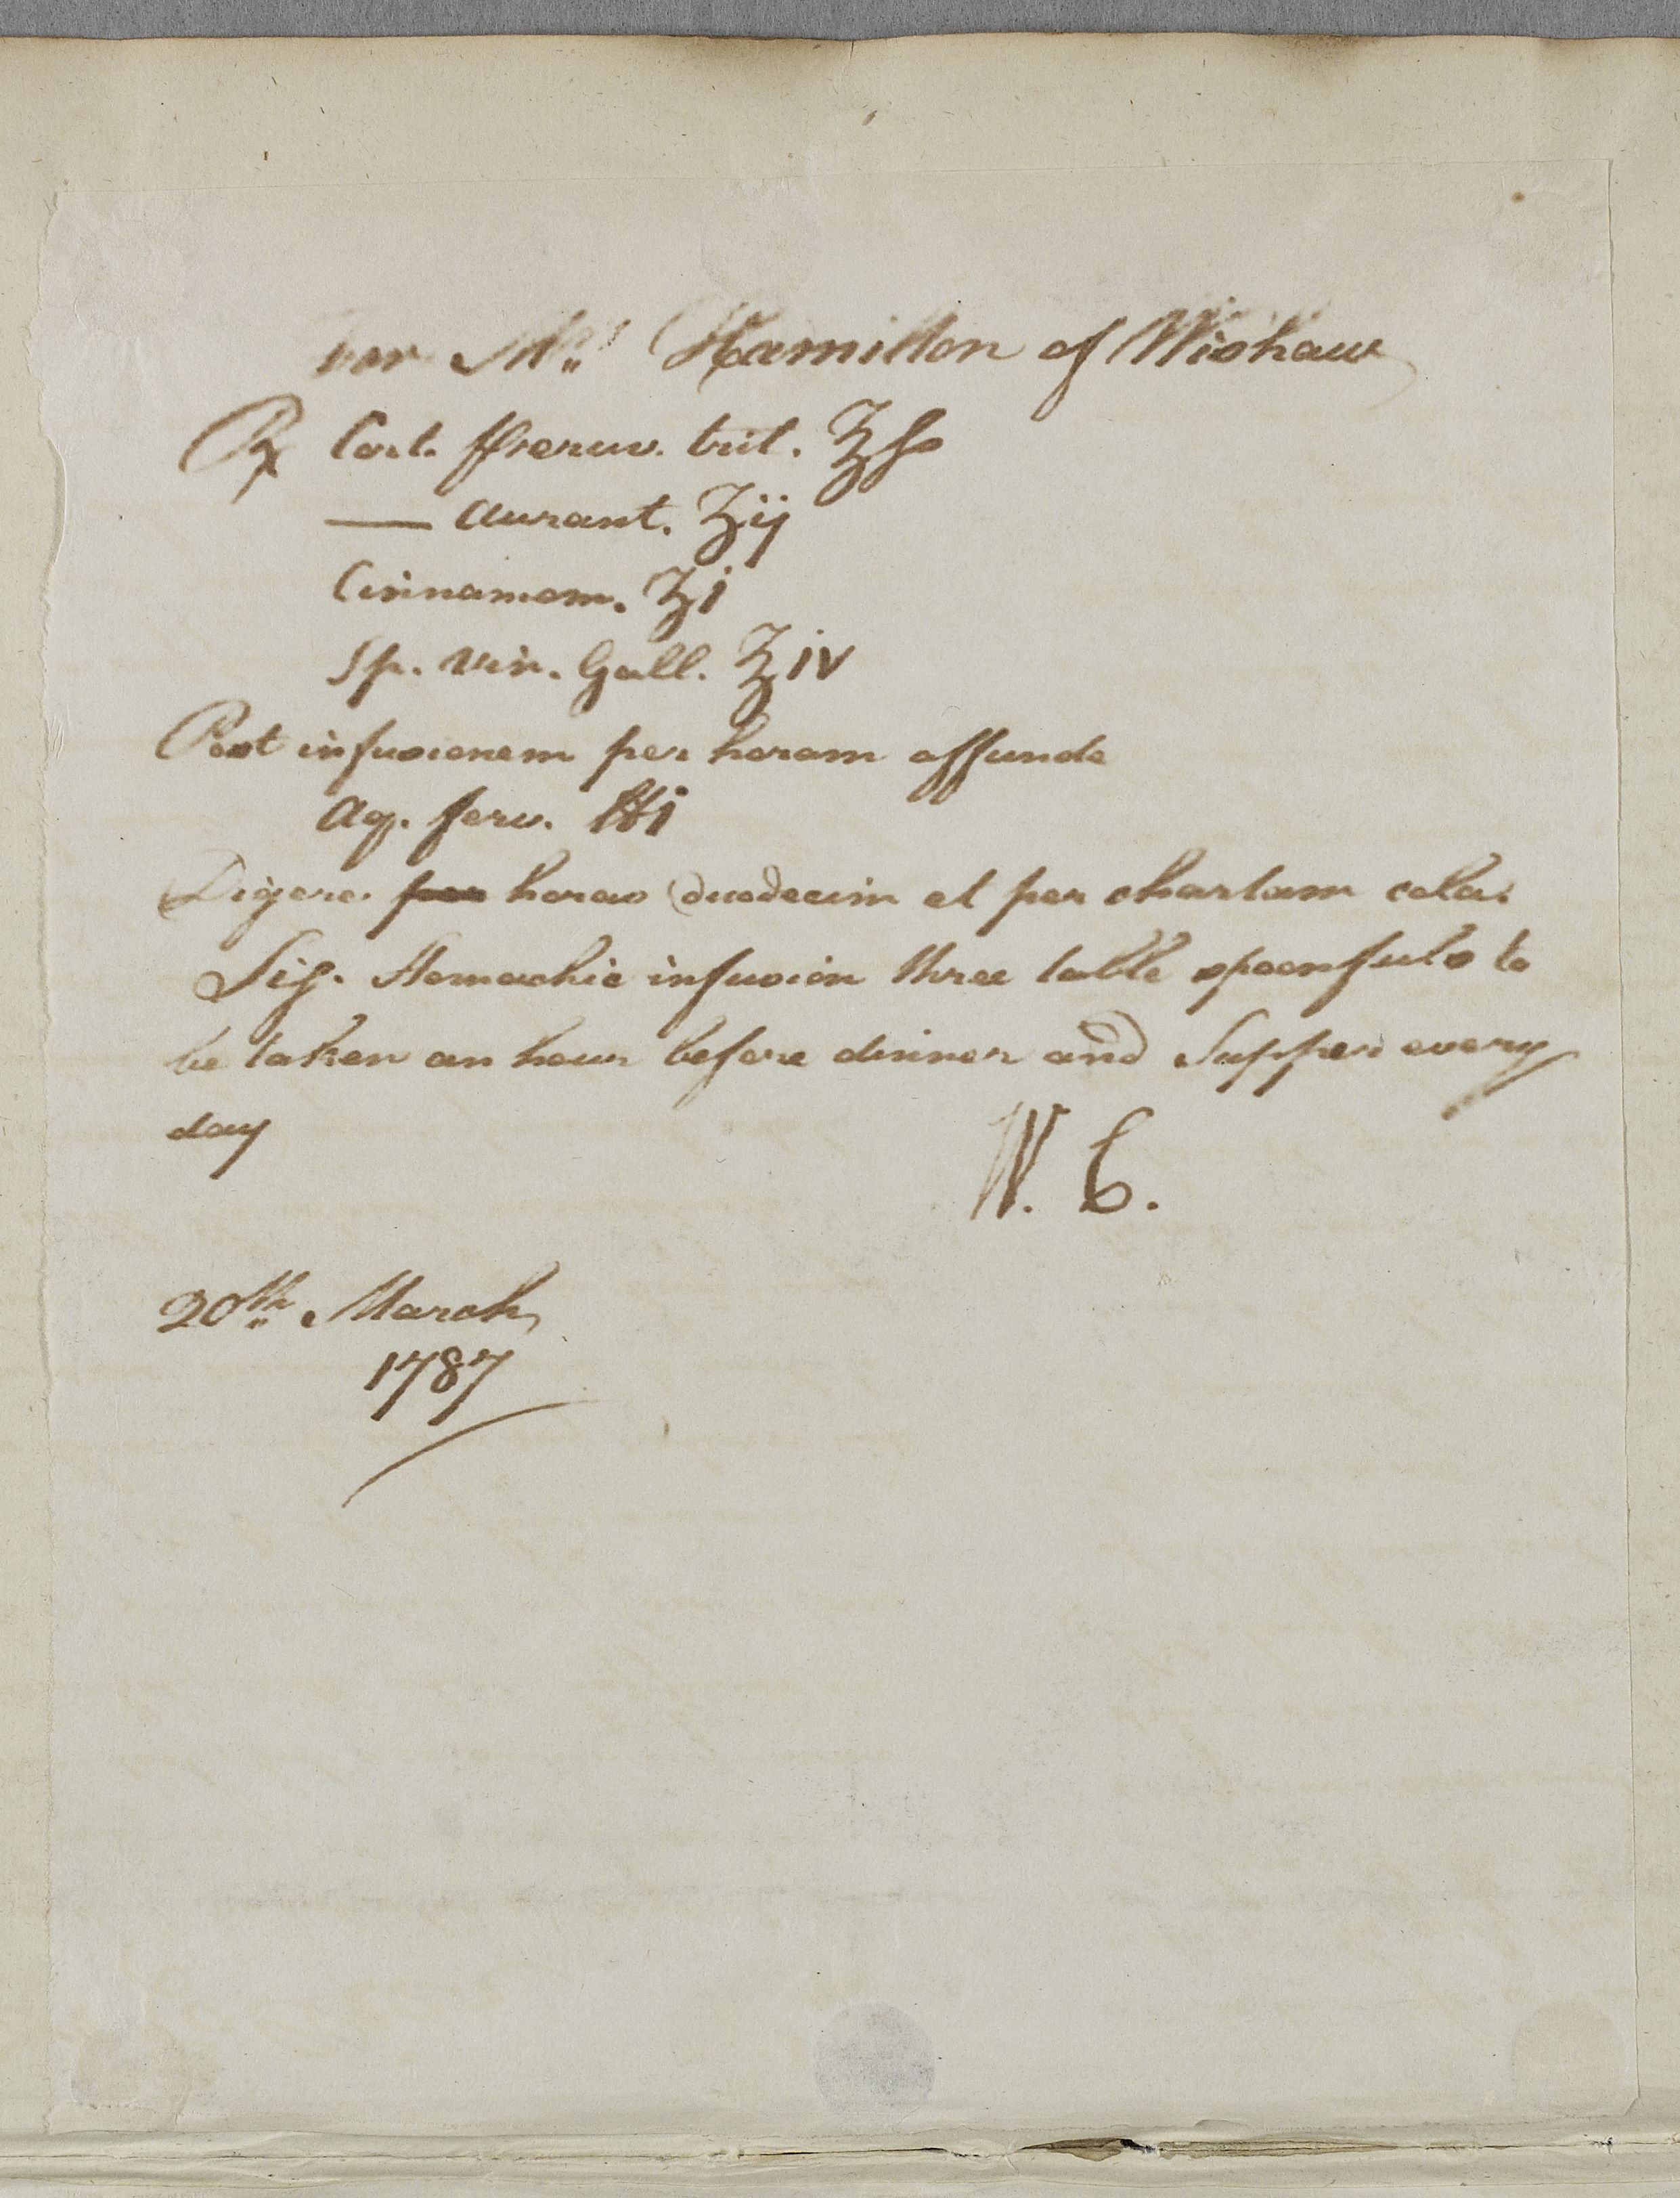 For Mrs. Hamilton of Wishaw
℞ Cort. Peruv. trit. ℥ss
—— Aurant. ʒij
Cinnamom. ʒi
Sp. Vin. Gall. ℥iv
Post infusionem per horam affunde
Aq. ferv. ℔i
Digere per horas duodecim et per chartam cola.
Sig. Stomachic infusion three table spoonfuls to
be taken an hour before dinner and Supper every
day
W. C.
20th. March
1787